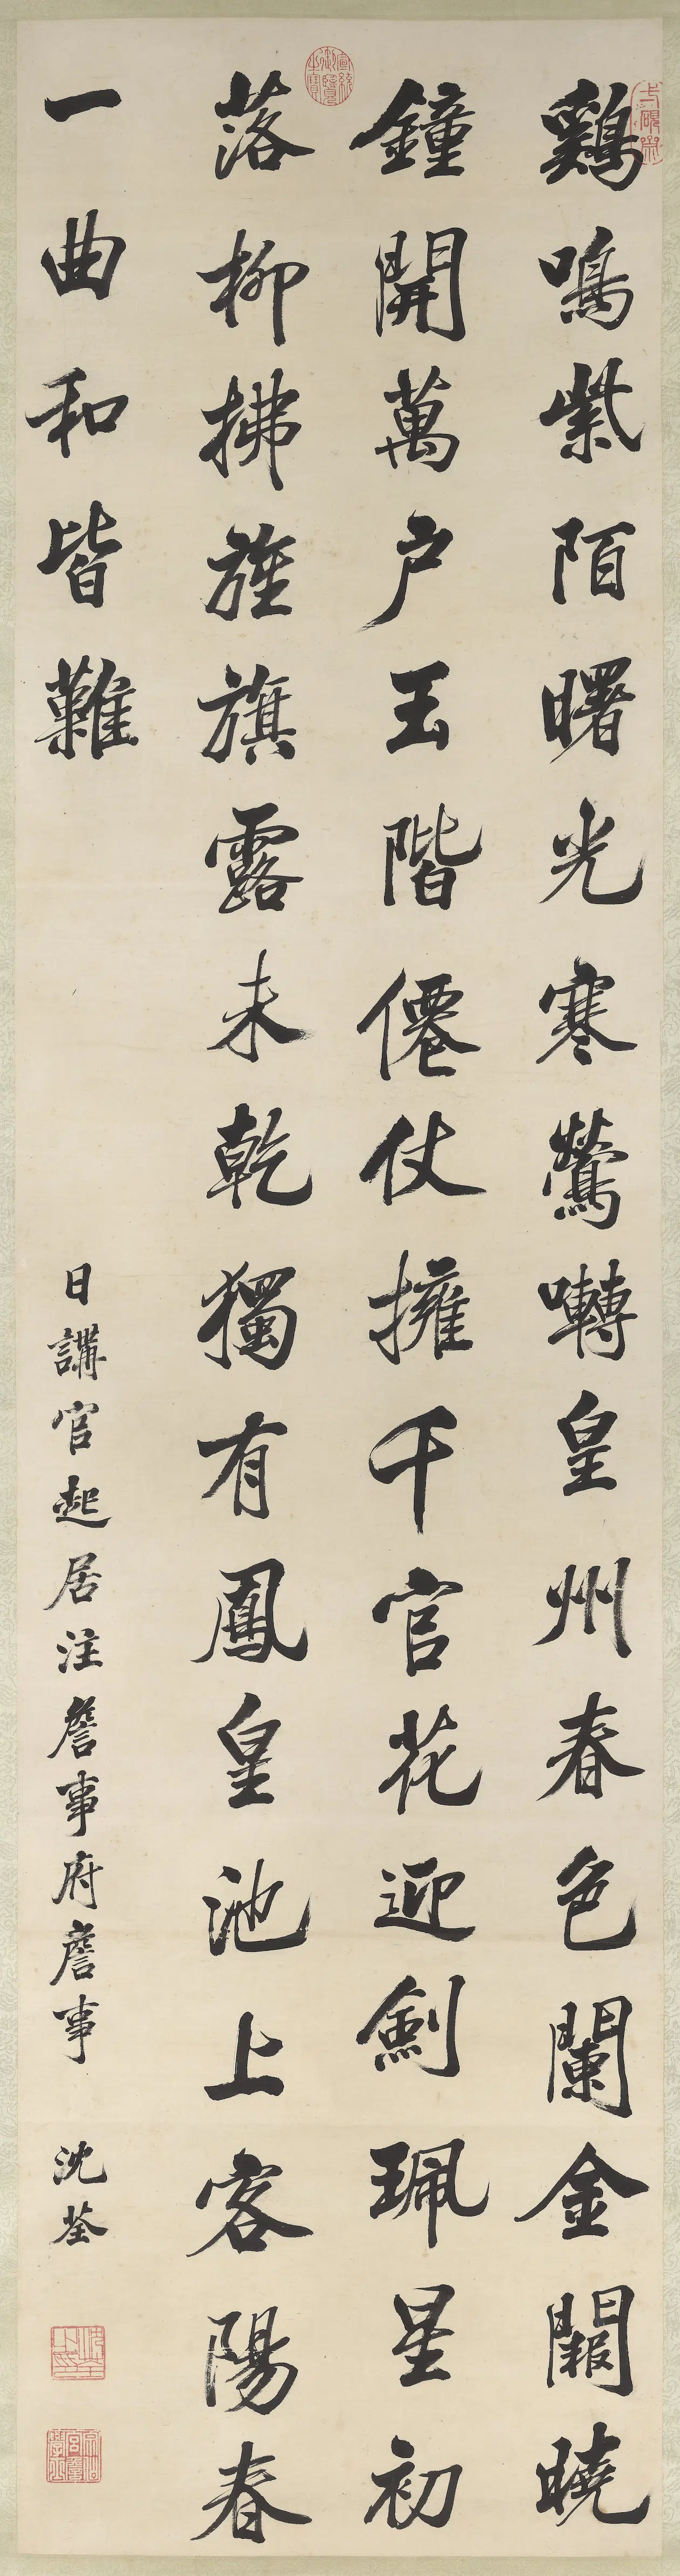 鷄鳴紫陌曙光寒鶯囀皇州春色闌金闕曉
鐘開萬户玉階僊仗擁千官花迎劍珮星初
落柳拂旌旗露未乾獨有鳳皇池上客陽春
一曲和皆難
日講官起居注詹事府詹事 沈荃
宣統御覽之寶
沈荃之印